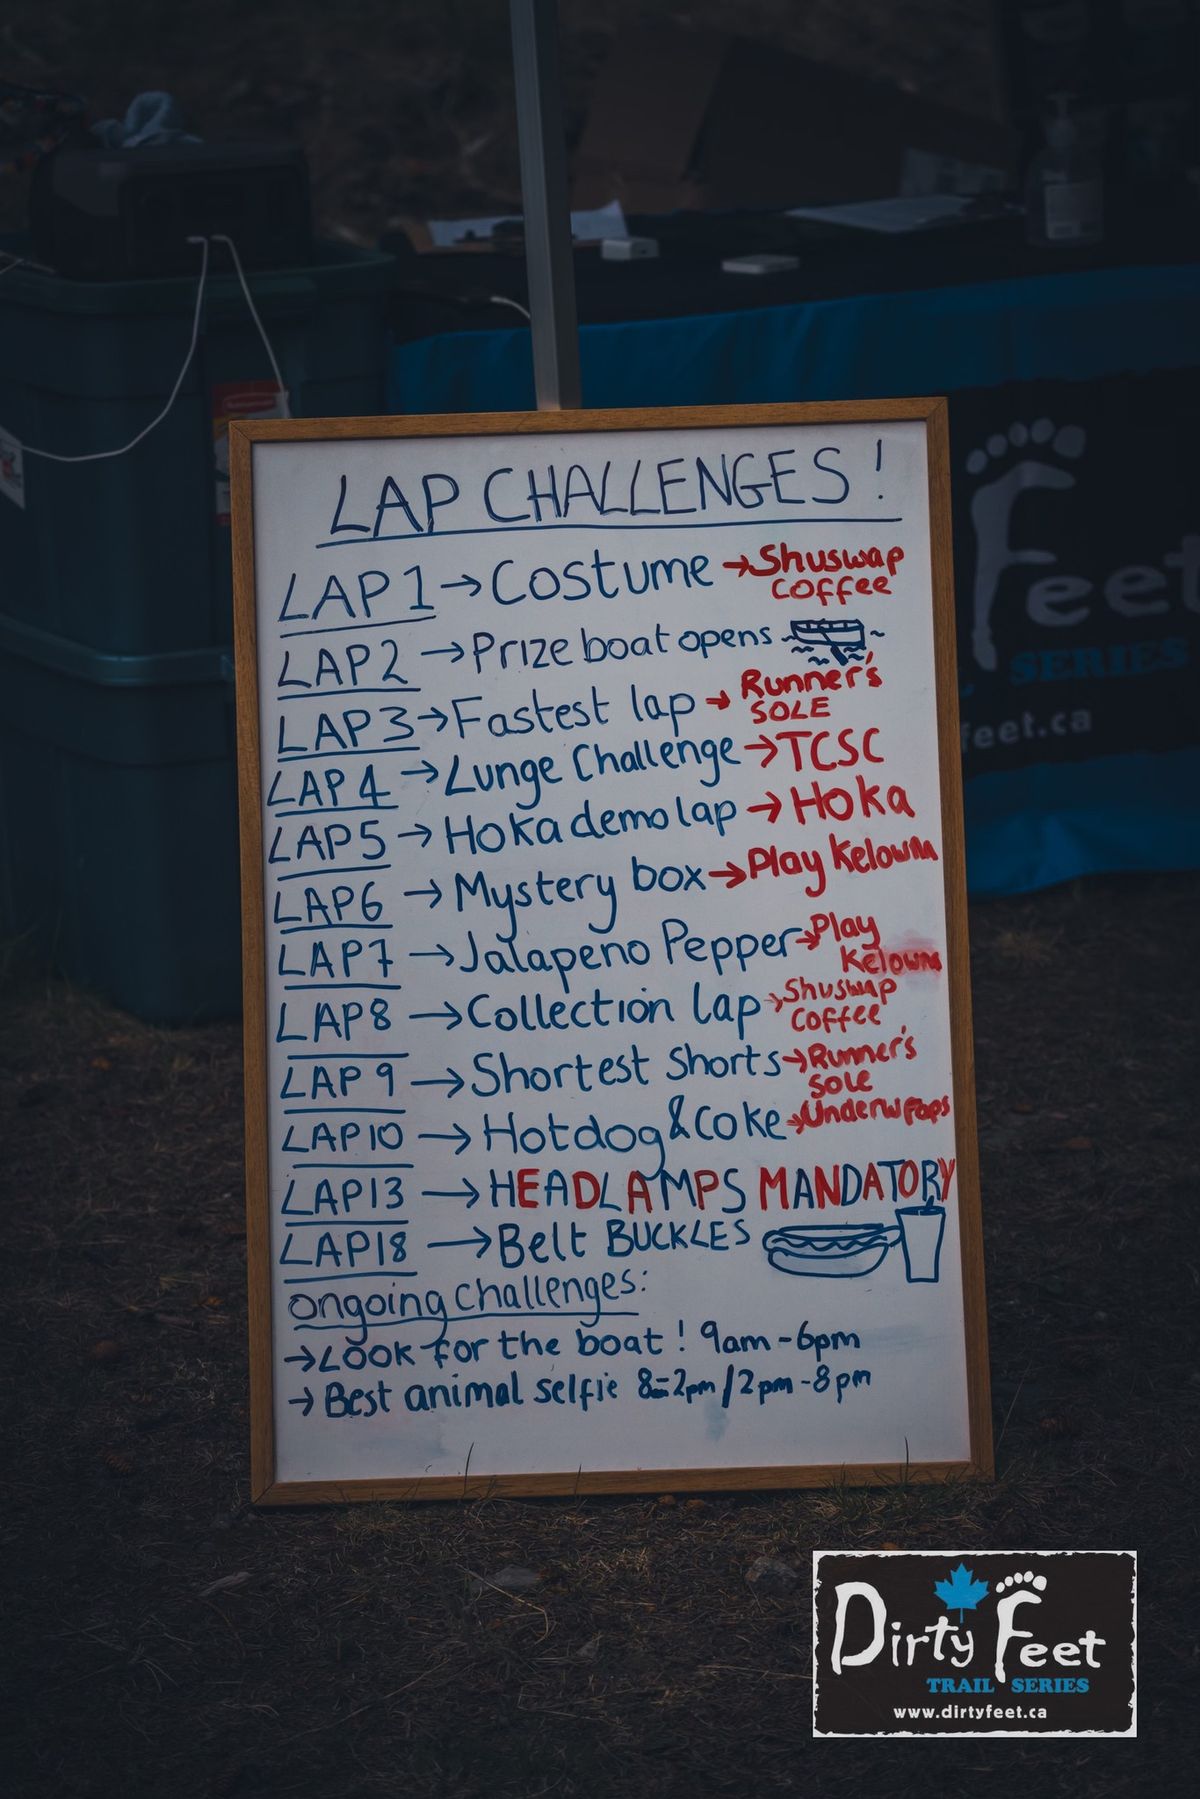 LAP CHALLENGES!
LAP 1 → Costume → Shuswap Coffee
LAP 2 → Prize boat opens
LAP 3 → Fastest lap → Runner's SOLE
LAP 4 → Lunge Challenge → TCSC
LAP 5 → Hoka demo lap → Hoka
LAP 6 → Mystery box → Play Kelowna
LAP 7 → Jalapeno Pepper → Play Kelowna
LAP 8 → Collection lap → Shuswap Coffee
LAP 9 → Shortest Shorts → Runner's Sole
LAP 10 → Hotdog & Coke → Underwraps
LAP 13 → HEADLAMPS MANDATORY
LAP 18 → Belt BUCKLES
ongoing challenges:
→ LOOK for the boat! 9am - 6pm
→ Best animal selfie 8-2pm / 2pm - 8pm
Feet
SERIES
feet.ca
Dirty Feet
TRAIL SERIES
www.dirtyfeet.ca